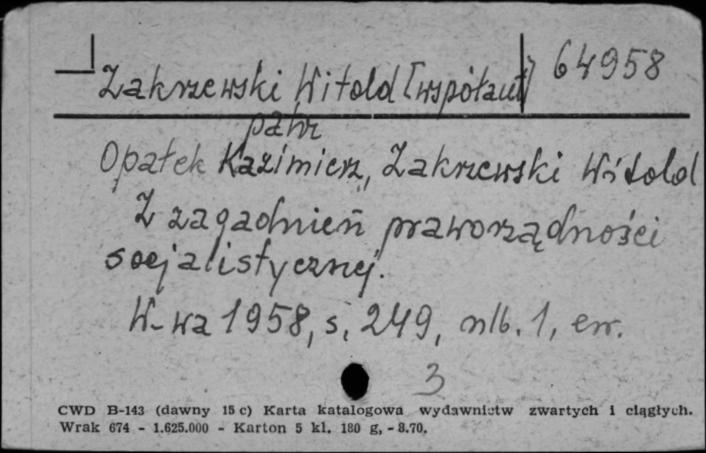 Zakrzewski Witold [współaut] 64958
patrz
Opałek Kazimierz, Zakrzewski Witold
Z zagadnień praworządności
socjalistycznej.
W-wa 1958, s. 249, nlb. 1, err.
3
CWD B-143 (dawny 15 c) Karta katalogowa wydawnictw zwartych i ciągłych.
Wrak 674 - 1.625.000 - Karton 5 kl. 180 g, - 8.70.